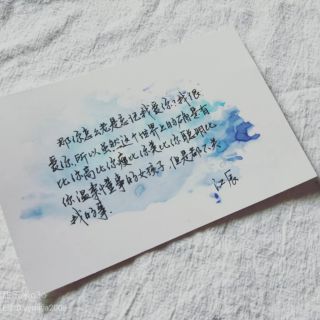 那你怎么老是忘记我爱你,我很
爱你,所以虽然这个世界上的确是有
比你高比你瘦比你美比你聪明比
你温柔懂事的女孩子,但是都不关
我的事.
江辰